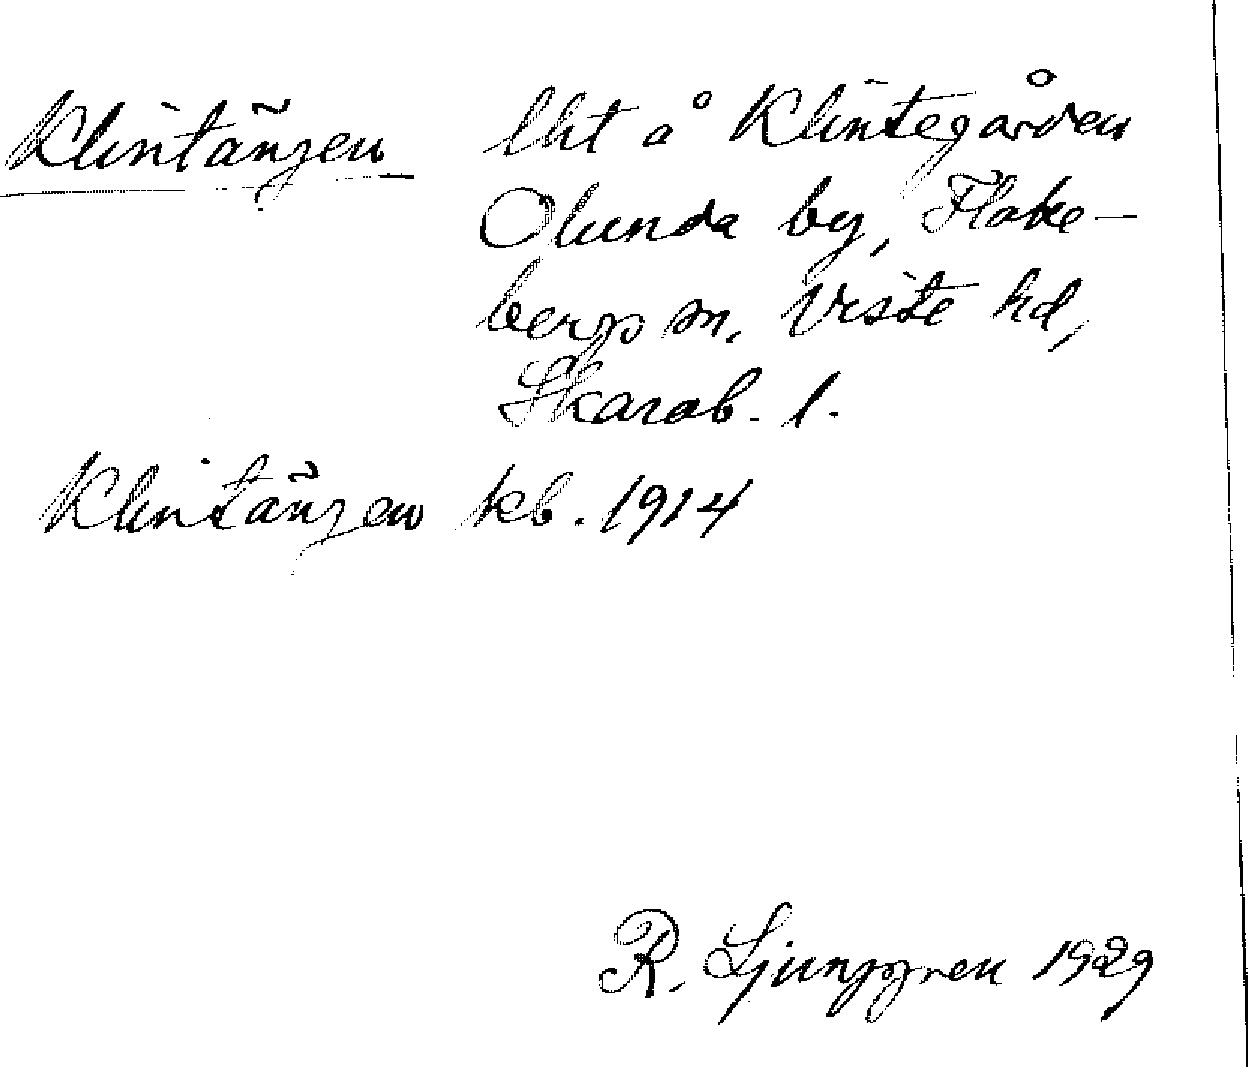 Klintängen lht å Klintegården
Olunda by, Flake-
bergs sn. Viste hd,
Skarab. l.
Klintängen kb. 1914
R. Ljunggren 1929